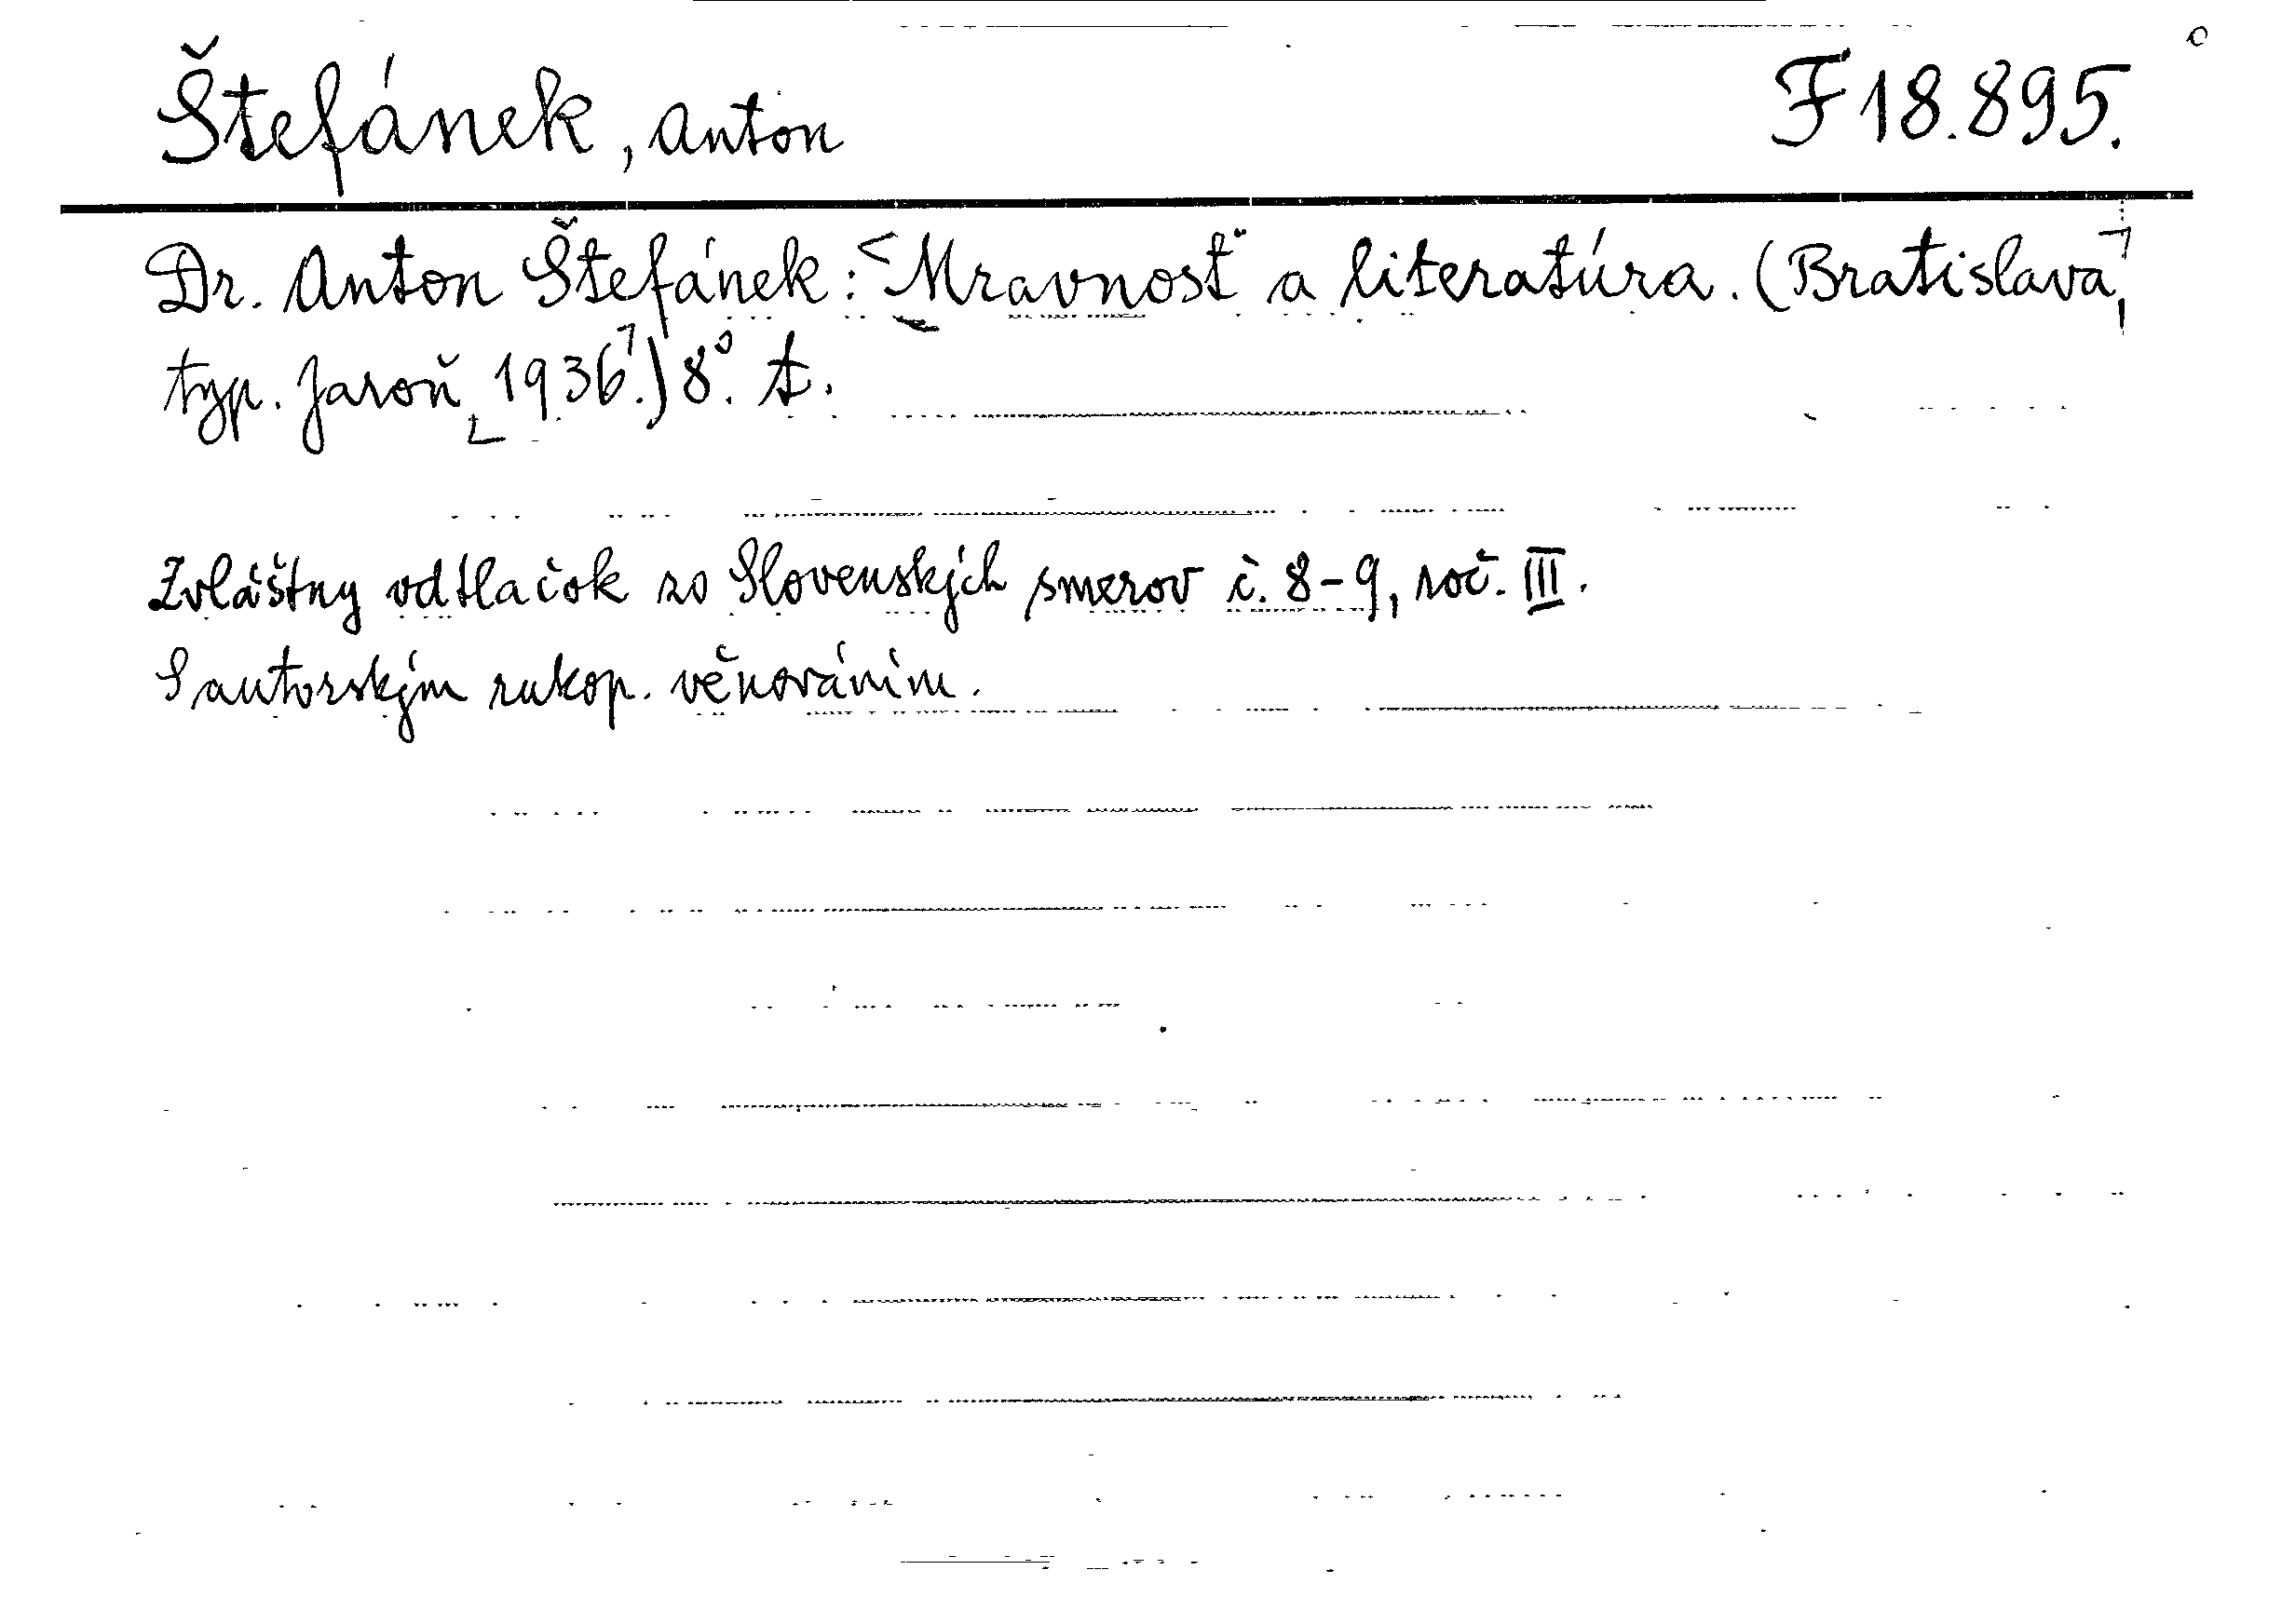 Štefánek, Anton F 18.895.
Dr. Anton Štefánek: <Mravnosť a literatúra. (Bratislava,
typ. Jaroň 1936.) 8°. A.
Zvláštny odtlačok zo Slovenských smerov č. 8-9, roč. III.
S autorským rukop. věnováním.